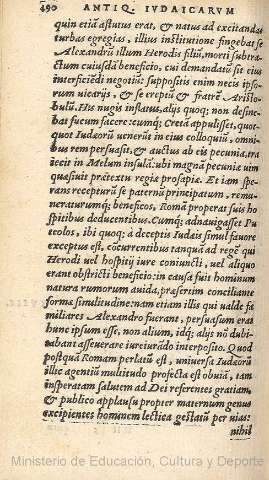 490 ANTIQ. IVDAICARVM
quin etiã astutus erat, & natus ad excitandas
turbas egregias, illius institutione fingebat se
Alexandrũ illum Herodis filiũ, morti subtra-
ctum cuiusdã beneficio, cui demandatũ sit eius
interficiẽdi negotiũ: suppositis enim necis ipso-
rum uicarijs, & se ereptũ & fratrẽ Aristo-
bulũ. His nugis inflatus, alijs quoq; non desine-
bat fucum facere: cumq; Cretã appulisset, quot-
quot Iudæorũ uenerũt in eius colloquiũ, omni-
bus rem persuasit, & auctus ab eis pecunia, tra
iecit in Melum insulã: ubi magnã pecuniæ uim
quæsiuit prætextu regiæ prosapiæ. Et iam spe-
rans recepturũ se paternũ principatum, remu-
neraturumq; beneficos, Romã properat suis ho
spitibus deducentibus. Cumq; adnauigasset Pu
teolos, ibi quoq; à deceptis Iudæis simul fauore
exceptus est, cõcurrentibus tanquã ad regẽ qui
Herodi uel hospitij iure coniuncti, uel aliquo
erant obstricti beneficio: in causa fuit hominum
natura rumorum auida, præsertim conciliante
forma similitudine: nam etiam illis qui ualde fa
miliares Alexandro fuerant, persuasum erat
hunc ipsum esse, non alium, idq; alijs nõ dubi-
tabant asseuerare iureiurãdo interposito. Quod
postquã Romam perlatũ est, uniuersa Iudæorũ
illic agentiũ multitudo profecta est obuiã, tam
insperatam salutem ad Dei referentes gratiam,
& publico applausu propter maternum genus
excipientes hominem lectica gestatũ per uias:
nihil
Ministerio de Educación, Cultura y Deporte